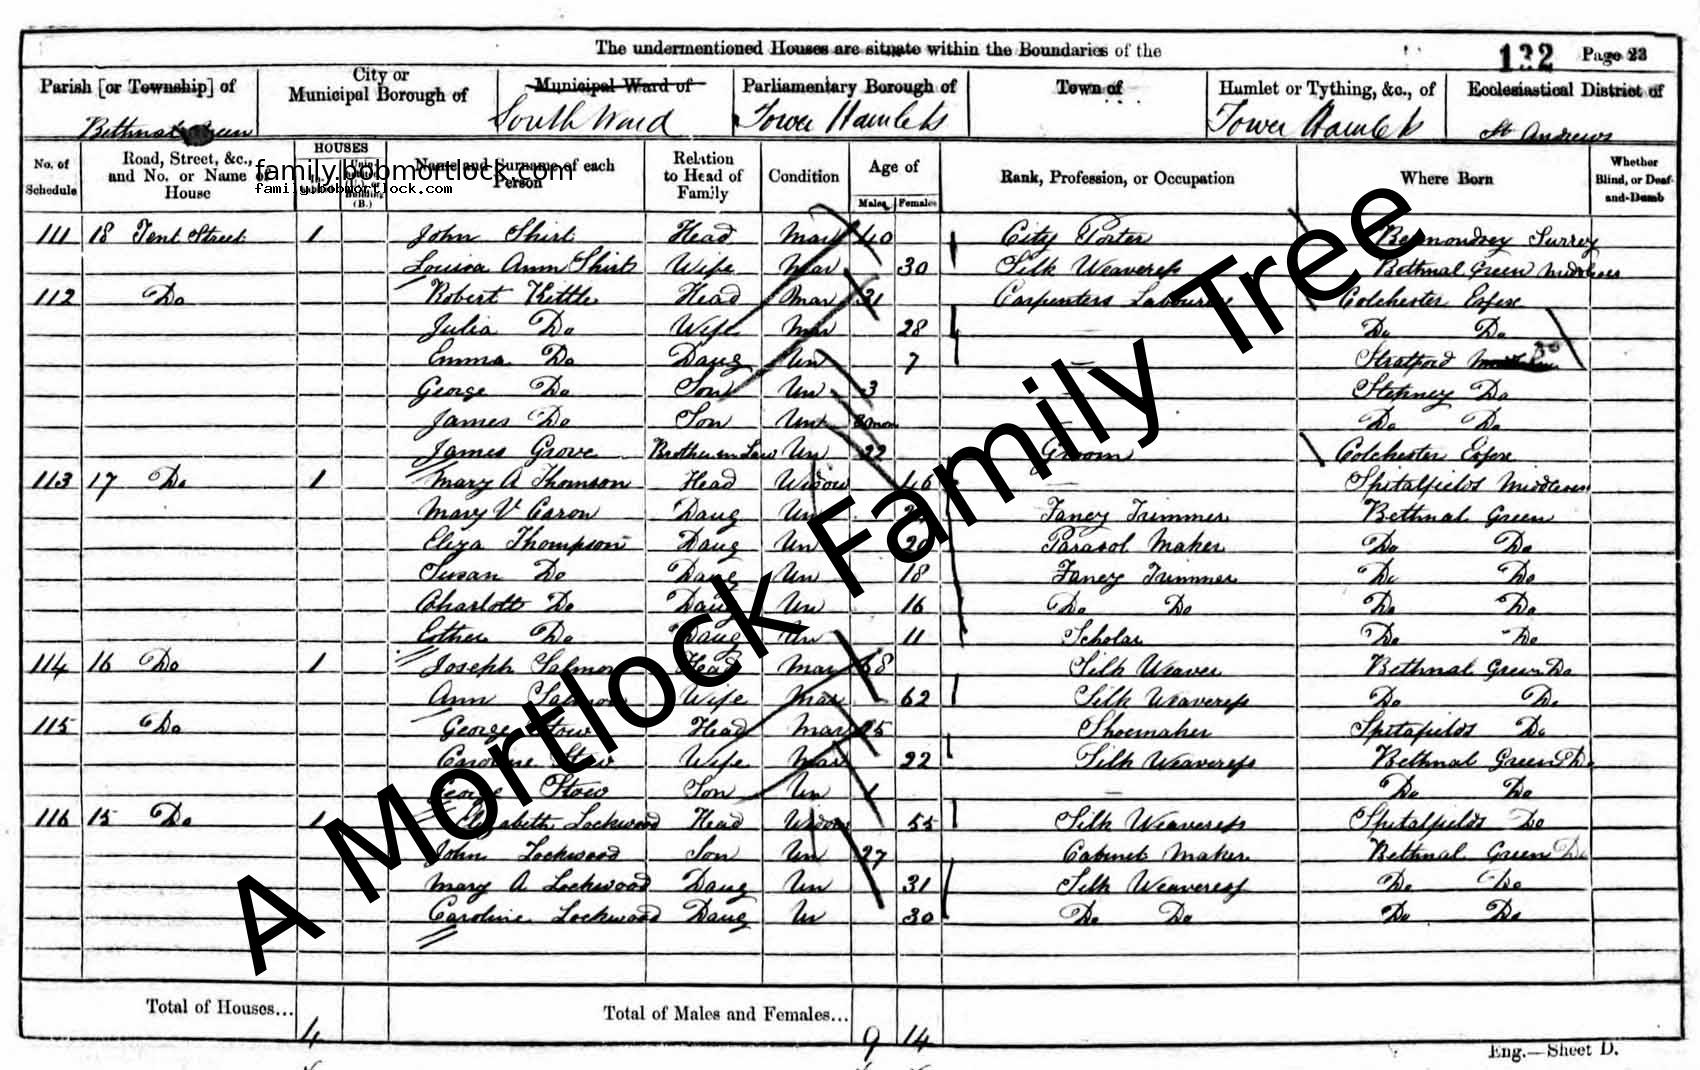 The undermentioned Houses are situate within the Boundaries of the
132 Page 23
Parish [or Township] of
City or Municipal Borough of
Municipal Ward of
Parliamentary Borough of
Town of
Hamlet or Tything, &c., of
Ecclesiastical District of
Bethnal Green South Ward Tower Hamlets Tower Hamlets St Andrews
No. of Schedule
Road, Street, &c., and No. or Name of House
HOUSES
(B.)
Name and Surname of each Person
Relation to Head of Family
Condition
Age of
Males Females
Rank, Profession, or Occupation
Where Born
Whether Blind, or Deaf-and-Dumb
family.bobmortlock.com
family.bobmortlock.com
111 18 Tent Street 1 John Shirt Head Mar 40 City Porter Bermondsey Surrey
Louisa Ann Shirts Wife Mar 30 Silk Weaveress Bethnal Green Middlesex
112 Do Robert Kittle Head Mar 31 Carpenters Labourer Colchester Essex
Julia Do Wife Mar 28 Do Do
Emma Do Daug Un 7 Stratford Do
George Do Son Un 3 Stepney Do
James Do Son Un Do Do
James Grove Brother in Law Un 22 Groom Colchester Essex
113 17 Do 1 Mary A Thomson Head Widow 46 Spitalfields Middlesex
Mary V Caron Daug Un Fancy Trimmer Bethnal Green
Eliza Thompson Daug Un 20 Parasol Maker Do Do
Susan Do Daug Un 18 Fancy Trimmer Do Do
Charlott Do Daug Un 16 Do Do Do Do
Esther Do Daug Un 11 Scholar Do Do
114 16 Do 1 Joseph Salmon Head Mar 58 Silk Weaver Bethnal Green Do
Ann Salmon Wife Mar 62 Silk Weaveress Do Do
115 Do George Stow Head Mar 25 Shoemaker Spitafields Do
Caroline Stow Wife Mar 22 Silk Weaveress Bethnal Green Do
George Stow Son Un 1 Do Do
116 15 Do 1 Elizabeth Lockwood Head Widow 55 Silk Weaveress Spitalfields Do
John Lockwood Son Un 27 Cabinet Maker Bethnal Green Do
Mary A Lockwood Daug Un 31 Silk Weaveress Do Do
Caroline Lockwood Daug Un 30 Do Do Do Do
Total of Houses... 4 Total of Males and Females... 9 14
Eng.—Sheet D.
A Mortlock Family Tree